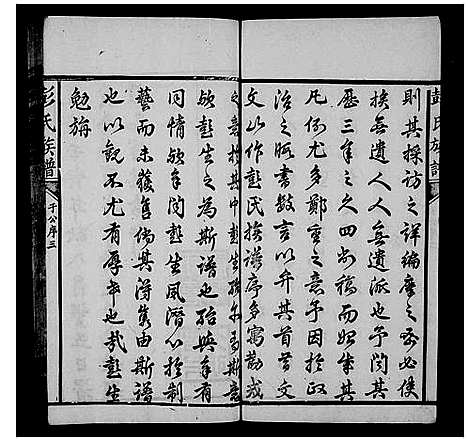 彭氏族譜
則其採訪之詳編摩之務必使
族無遺人人無遺派也予閱其
歷三年之久四易稿而始成其
凡例尤多鄭重之意予因於政
治之暇書數言以弁其首昔文
文山作彭氏族譜序多寓勸戒
之意於其中彭生殆亦有斯意
歟彭生之為斯譜也殆與予有
同情歟予聞彭生夙潛心於制
藝而未獲售倘其得雋由斯譜
也以觀不尤有厚幸也哉彭生
勉旃
彭氏族譜
于公序三